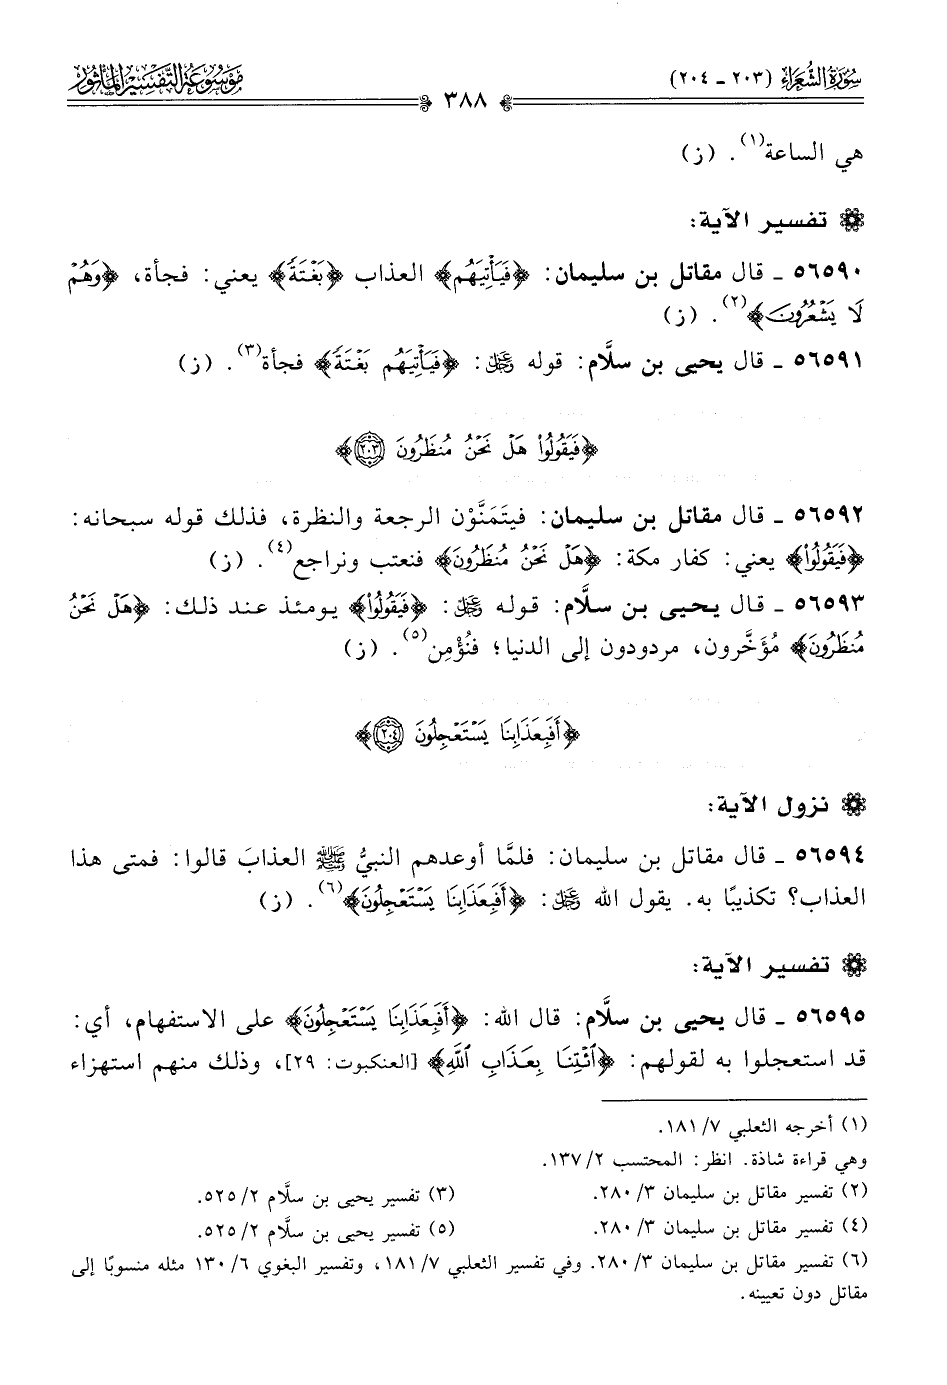 سُورَةُ الشُّعَرَاءِ (٢٠٣ - ٢٠٤)
٣٨٨
مَوْسُوعَةُ التَّفْسِيرِ المَأْثُور
هي الساعة(١). (ز)
تفسير الآية:
٥٦٥٩٠ ـ قال مقاتل بن سليمان: ﴿فَيَأْتِيَهُم﴾ العذاب ﴿بَغْتَةً﴾ يعني: فجأة، ﴿وَهُمْ
لَا يَشْعُرُونَ﴾(٢). (ز)
٥٦٥٩١ ـ قال يحيى بن سلَّام: قوله ﷿: ﴿فَيَأْتِيَهُم بَغْتَةً﴾ فجأة(٣). (ز)
﴿فَيَقُولُوا۟ هَلْ نَحْنُ مُنظَرُونَ ٢٠٣﴾
٥٦٥٩٢ ـ قال مقاتل بن سليمان: فيتمَنَّوْن الرجعة والنظرة، فذلك قوله سبحانه:
﴿فَيَقُولُوا۟﴾ يعني: كفار مكة: ﴿هَلْ نَحْنُ مُنظَرُونَ﴾ فنعتب ونراجع(٤). (ز)
٥٦٥٩٣ ـ قال يحيى بن سلَّام: قوله ﷿: ﴿فَيَقُولُوا۟﴾ يومئذ عند ذلك: ﴿هَلْ نَحْنُ
مُنظَرُونَ﴾ مُؤَخَّرون، مردودون إلى الدنيا؛ فنُؤْمِن(٥). (ز)
﴿أَفَبِعَذَابِنَا يَسْتَعْجِلُونَ ٢٠٤﴾
نزول الآية:
٥٦٥٩٤ ـ قال مقاتل بن سليمان: فلمَّا أوعدهم النبيُّ ﷺ العذابَ قالوا: فمتى هذا
العذاب؟ تكذيبًا به. يقول الله ﷿: ﴿أَفَبِعَذَابِنَا يَسْتَعْجِلُونَ﴾(٦). (ز)
تفسير الآية:
٥٦٥٩٥ ـ قال يحيى بن سلَّام: قال الله: ﴿أَفَبِعَذَابِنَا يَسْتَعْجِلُونَ﴾ على الاستفهام، أي:
قد استعجلوا به لقولهم: ﴿ٱئْتِنَا بِعَذَابِ ٱللَّهِ﴾ [العنكبوت: ٢٩]، وذلك منهم استهزاء
(١) أخرجه الثعلبي ٧/ ١٨١.
وهي قراءة شاذة. انظر: المحتسب ٢/ ١٣٧.
(٢) تفسير مقاتل بن سليمان ٣/ ٢٨٠. (٣) تفسير يحيى بن سلَّام ٢/ ٥٢٥.
(٤) تفسير مقاتل بن سليمان ٣/ ٢٨٠. (٥) تفسير يحيى بن سلَّام ٢/ ٥٢٥.
(٦) تفسير مقاتل بن سليمان ٣/ ٢٨٠. وفي تفسير الثعلبي ٧/ ١٨١، وتفسير البغوي ٦/ ١٣٠ مثله منسوبًا إلى
مقاتل دون تعيينه.